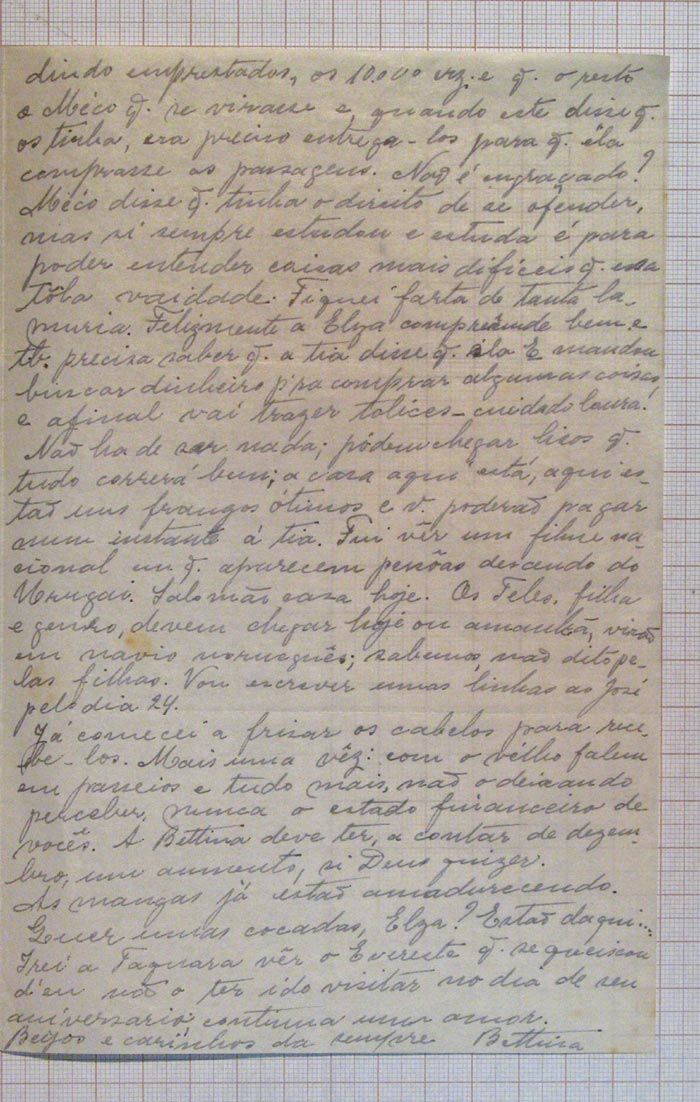 dindo emprestados, os 10.000 crz. e q̃. o resto
o Méco q̃. se virasse e, quando este disse q̃.
os tinha, era preciso entrega-los para q̃. éla
comprasse as passagens. Não é engraçado?
Méco disse q̃. tinha o direito de se ofender,
mas si sempre estudou e estuda é para
poder entender coisas mais difíceis q̃. essa
tôla vaidade. Fiquei farta de tanta la-
muria. Felizmente a Elza compreende bem e
tb. precisa saber q̃. a tia disse q̃. éla E mandou
buscar dinheiro p'ra comprar algumas coisas,
e afinal vai trazer tolices - cuidado loura.
Não ha de ser nada; pódem chegar lisos q̃.
tudo correrá bem; a casa aqui está, aqui es-
tão uns frangos ótimos e v. poderão pagar
num instante á tia. Fui vêr um filme na-
cional em q̃. aparecem pensões descendo do
Urugai. Salomão casa hoje. Os Teles, filha
e genro, devem chegar hoje ou amanhã, virão
em navio norueguês; sabemos, não dito pe-
las filhas. Vou escrever umas linhas ao José
pelo dia 24.
Já comecei a frisar os cabelos para rece-
be-los. Mais uma vêz: com o vélho falem
em passeios e tudo mais, não o deixando
perceber, nunca o estado financeiro de
vocês. A Bettina deve ter, a contar de dezem-
bro, um aumento, si Deus quizer.
As mangas já estão amadurecendo.
Quer umas cocadas, Elza? Estão daqui...
Irei a Taquara vêr o Evereste q̃. se queixou
d'eu não o ter ido visitar no dia de seu
aniversario continua um amor.
Beijos e carinhos da sempre Bettina